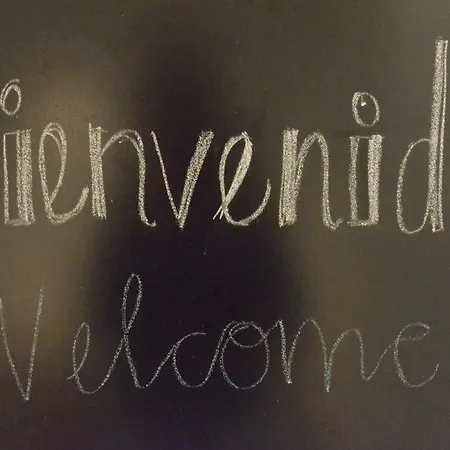 ienvenid
Welcome